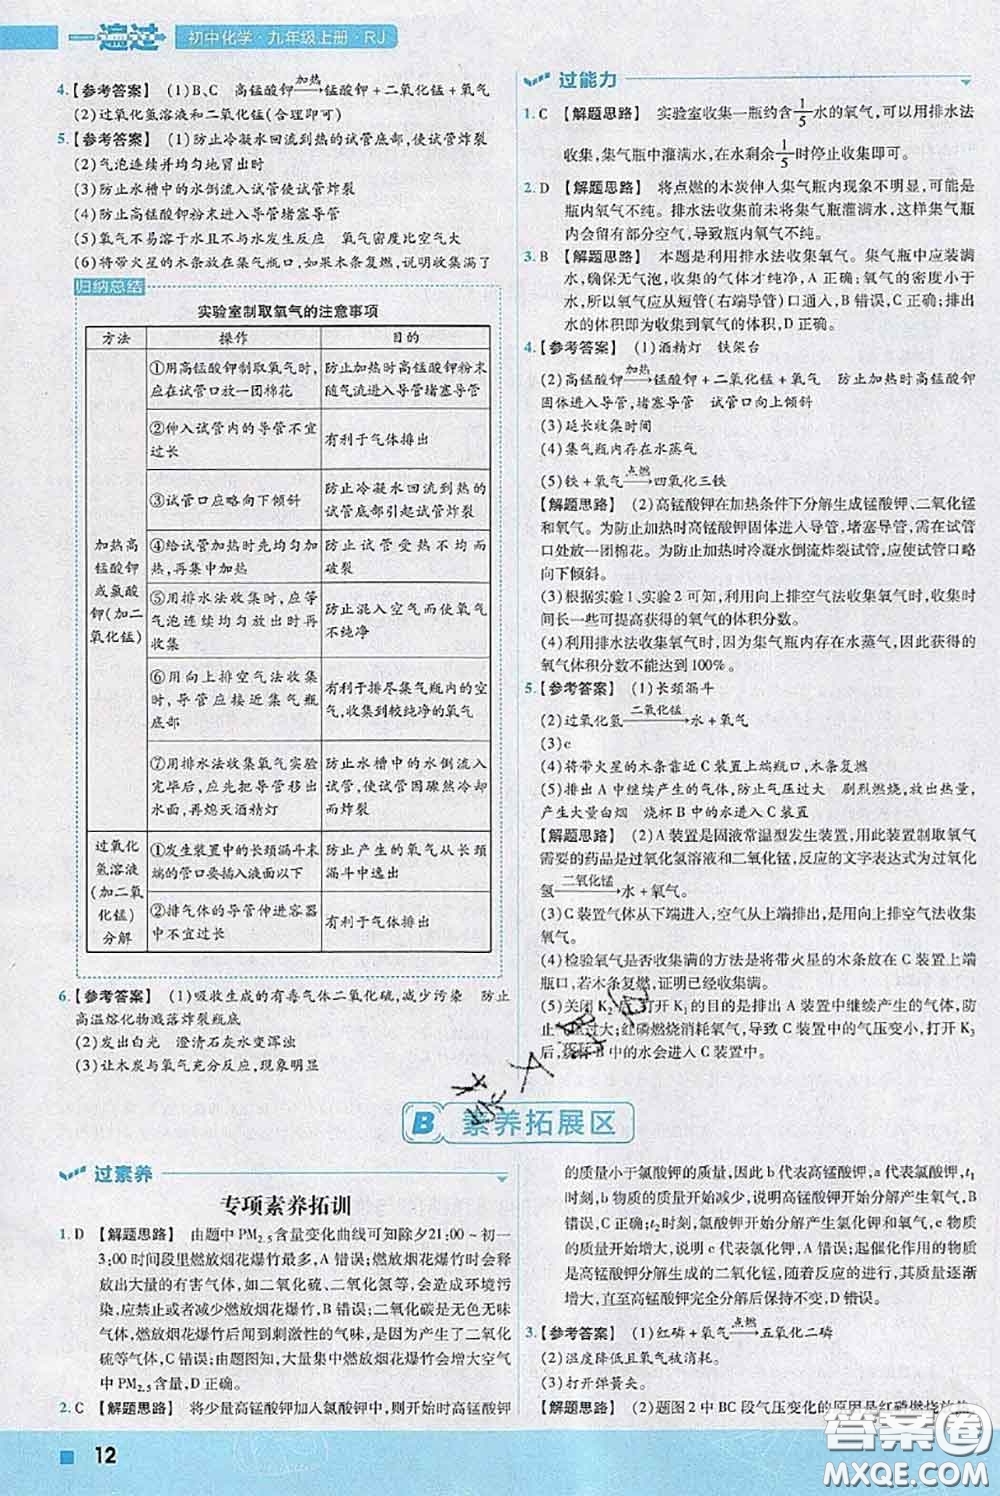 一遍过 初中化学·九年级上册·RJ
4.【参考答案】 (1)B、C 高锰酸钾 加热→ 锰酸钾+二氧化锰+氧气
(2)过氧化氢溶液和二氧化锰(合理即可)
5.【参考答案】 (1)防止冷凝水回流到热的试管底部,使试管炸裂
(2)气泡连续并均匀地冒出时
(3)防止水槽中的水倒流入试管使试管炸裂
(4)防止高锰酸钾粉末进入导管堵塞导管
(5)氧气不易溶于水且不与水发生反应 氧气密度比空气大
(6)将带火星的木条放在集气瓶口,如果木条复燃,说明收集满了
归纳总结
实验室制取氧气的注意事项
方法 操作 目的
加热高
锰酸钾
或氯酸
钾(加二
氧化锰)
①用高锰酸钾制取氧气时,
应在试管口放一团棉花
防止加热时高锰酸钾粉末
随气流进入导管堵塞导管
②伸入试管内的导管不宜
过长
有利于气体排出
③试管口应略向下倾斜
防止冷凝水回流到热的试
管底部引起试管炸裂
④给试管加热时先均匀加
热,再集中加热
防止试管受热不均而
破裂
⑤用排水法收集时,应等
气泡连续均匀放出时再
收集
防止混入空气而使氧气
不纯净
⑥用向上排空气法收集
时,导管应接近集气瓶
底部
有利于排尽集气瓶内的空
气,收集到较纯净的氧气
⑦用排水法收集氧气实验
完毕后,应先把导管移出
水面,再熄灭酒精灯
防止水槽中的水倒流入
试管,使试管因骤然冷却
而炸裂
过氧化
氢溶液
(加二氧
化锰)
分解
①发生装置中的长颈漏斗末
端的管口要插入液面以下
防止产生的氧气从长颈
漏斗中逸出
②排气体的导管伸进容器
中不宜过长
有利于气体导出
6.【参考答案】 (1)吸收生成的有毒气体二氧化硫,减少污染 防止
高温熔化物溅落炸裂瓶底
(2)发出白光 澄清石灰水变浑浊
(3)让木炭与氧气充分反应,现象明显
过能力
1. C 【解题思路】 实验室收集一瓶约含1/5水的氧气,可以用排水法
收集,集气瓶中灌满水,在水剩余1/5时停止收集即可。
2. D 【解题思路】 将点燃的木炭伸人集气瓶内现象不明显,可能是
瓶内氧气不纯。排水法收集前未将集气瓶灌满水,这样集气瓶
内会留有部分空气,导致瓶内氧气不纯。
3. B 【解题思路】 本题是利用排水法收集氧气。集气瓶中应装满
水,确保无气泡,收集的气体才纯净,A正确;氧气的密度小于
水,所以氧气应从短管(右端导管)口通入,B错误,C正确;排出
水的体积即为收集到氧气的体积,D正确。
4.【参考答案】 (1)酒精灯 铁架台
(2)高锰酸钾 加热→ 锰酸钾+二氧化锰+氧气 防止加热时高锰酸钾
固体进入导管,堵塞导管 试管口向上倾斜
(3)延长收集时间
(4)集气瓶内存在水蒸气
(5)铁+氧气 点燃→ 四氧化三铁
【解题思路】 (2)高锰酸钾在加热条件下分解生成锰酸钾、二氧化锰
和氧气。为防止加热时高锰酸钾固体进入导管,堵塞导管,需在试管
口处放一团棉花。为防止加热时冷凝水倒流炸裂试管,应使试管口略
向下倾斜。
(3)根据实验1、实验2可知,利用向上排空气法收集氧气时,收集时
间长一些可提高获得的氧气的体积分数。
(4)利用排水法收集氧气时,因为集气瓶内存在水蒸气,因此获得的
氧气体积分数不能达到100%。
5.【参考答案】 (1)长颈漏斗
(2)过氧化氢 二氧化锰→ 水+氧气
(3)c
(4)将带火星的木条靠近C装置上端瓶口,木条复燃
(5)排出A中继续产生的气体,防止气压过大 剧烈燃烧,放出热量,
产生大量白烟 烧杯B中的水进入C装置
【解题思路】 (2)A装置是固液常温型发生装置,用此装置制取氧气
需要的药品是过氧化氢溶液和二氧化锰,反应的文字表达式为过氧化
氢 二氧化锰→ 水+氧气。
(3)C装置气体从下端进入,空气从上端排出,是用向上排空气法收集
氧气。
(4)检验氧气是否收集满的方法是将带火星的木条放在C装置上端
瓶口,若木条复燃,证明已经收集满。
(5)关闭K2后,打开K1的目的是排出A装置中继续产生的气体,防
止气压过大;红磷燃烧消耗氧气,导致C装置中的气压变小,打开K3
后,烧杯B中的水会进入C装置中。
B 素养拓展区
过素养
专项素养拓训
1. D 【解题思路】 由题中PM2.5含量变化曲线可知除夕21:00~初一
3:00时间段里燃放烟花爆竹最多,A错误;燃放烟花爆竹时会释
放出大量的有害气体,如二氧化硫、二氧化氮等,会造成环境污
染,应禁止或者减少燃放烟花爆竹,B错误;二氧化碳是无色无味
气体,燃放烟花爆竹后闻到刺激性的气味,是因为产生了二氧化
硫等气体,C错误;由题图知,大量集中燃放烟花爆竹会增大空气
中PM2.5含量,D正确。
2. C 【解题思路】 将少量高锰酸钾加入氯酸钾中,则开始时高锰酸钾
的质量小于氯酸钾的质量,因此b代表高锰酸钾,a代表氯酸钾,t1
时刻,b物质的质量开始减少,说明高锰酸钾开始分解产生氧气,B
错误;t2时刻,氯酸钾开始分解生成氯化钾和氧气,氧气的质量开
始增大,说明c代表氯化钾,C正确,A错误;起催化作用的物质
是高锰酸钾分解生成的二氧化锰,随着反应的进行,其质量逐渐
增大,直至高锰酸钾完全分解后保持不变,D错误。
3.【参考答案】 (1)红磷+氧气 点燃→ 五氧化二磷
(2)温度降低且氧气被消耗。
(3)打开弹簧夹。
【解题思路】 (2)题图2中BC段气压变化的原因是红磷燃烧放热
12
答案圈
MXQE.COM